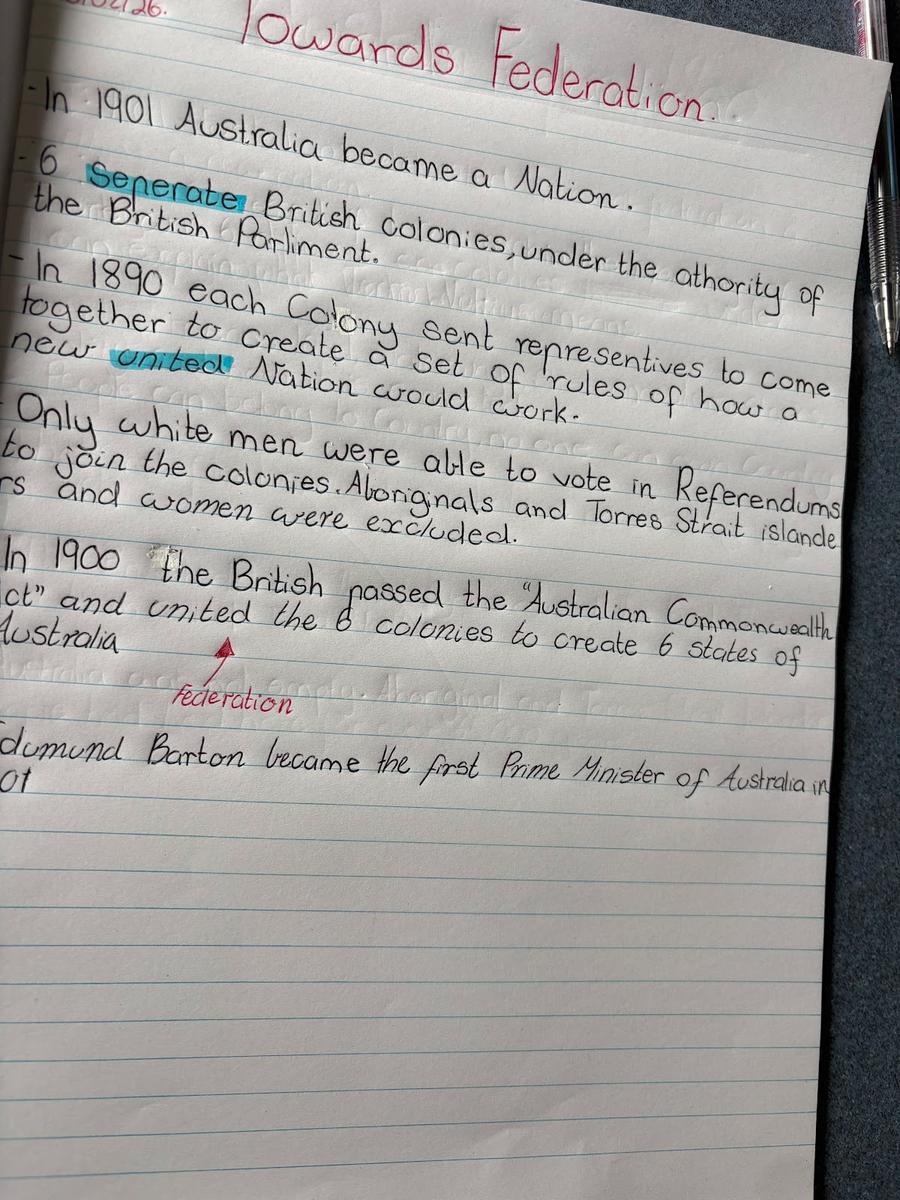 Towards Federation.
- In 1901 Australia became a Nation.
- 6 Seperate British colonies, under the athority of
the British Parliment.
- In 1890 each Colony sent representives to come
together to create a set of rules of how a
new united Nation would work.
- Only white men were able to vote in Referendums
to join the colonies. Aboriginals and Torres Strait islande
rs and women were excluded.
In 1900 the British passed the "Australian Commonwealth
ct" and united the 6 colonies to create 6 states of
Australia
Federation
dumund Barton became the first Prime Minister of Australia in
01